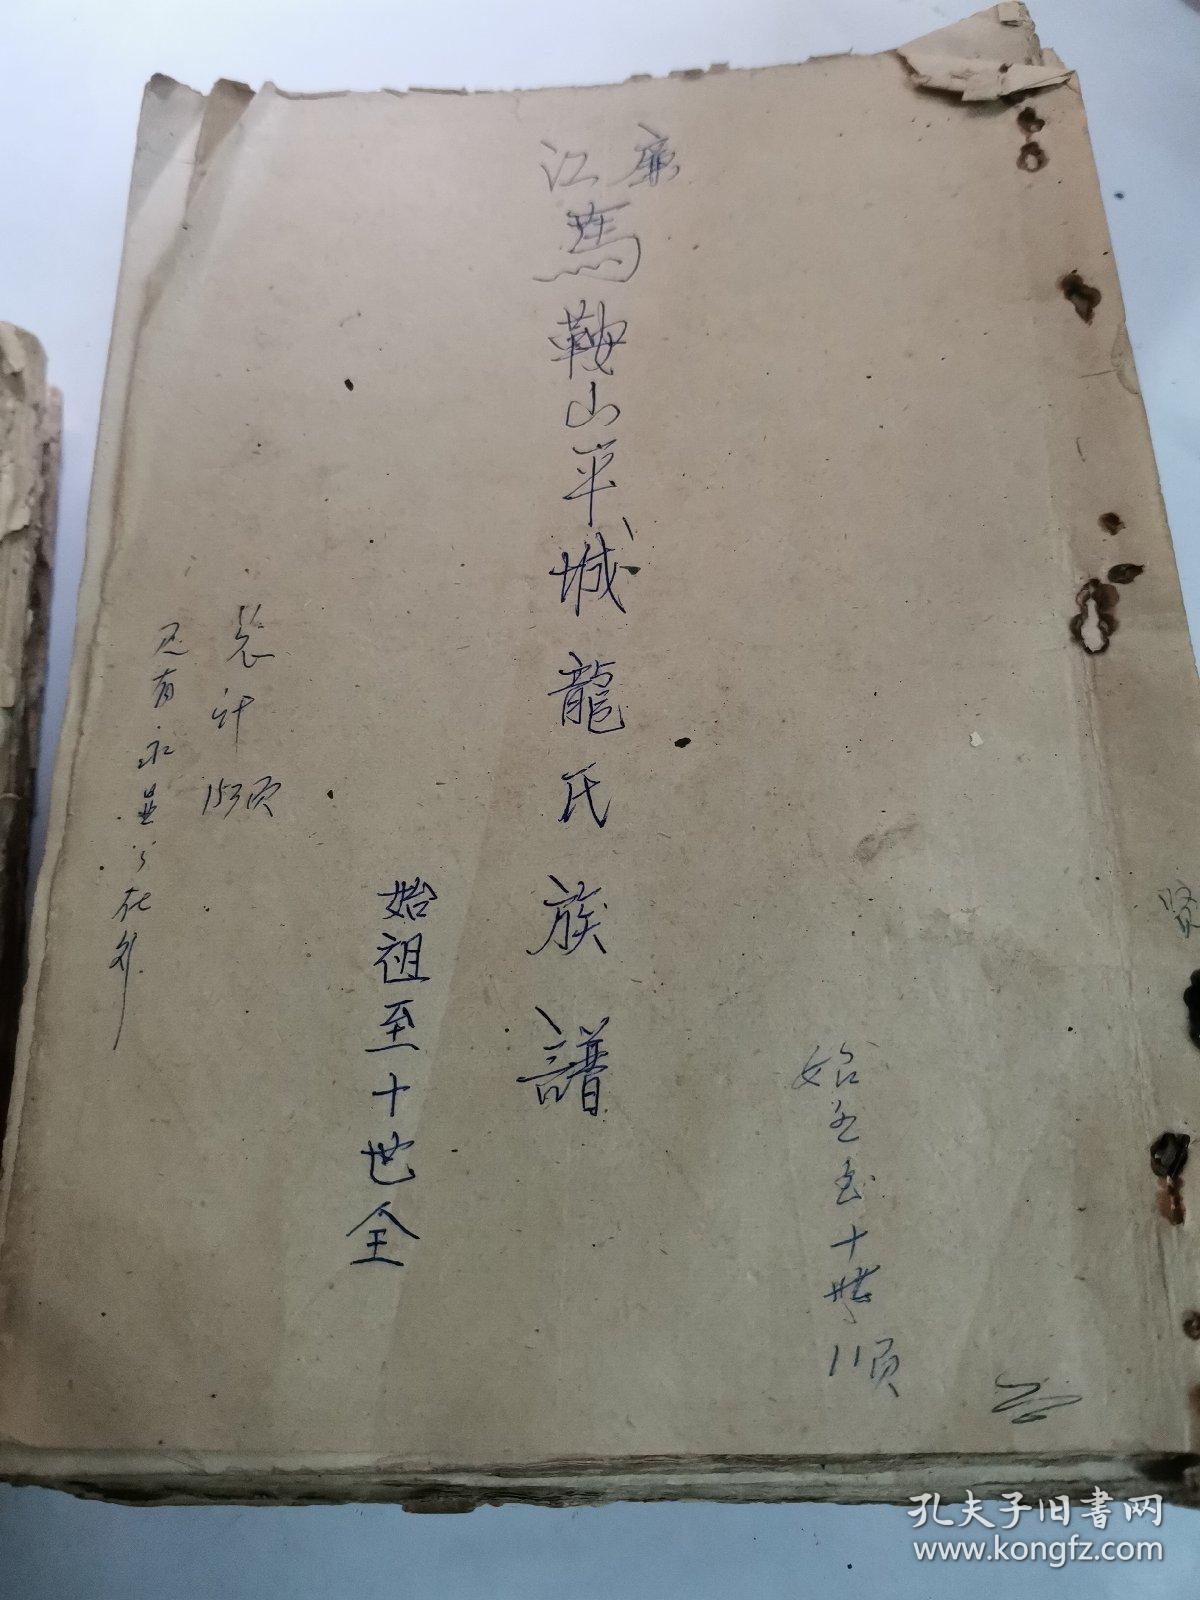 江廉
馬鞍山平城龍氏族譜
始祖至十世全
始至
十世
11页
共计
153页
还有永
公在外
贤
孔夫子旧书网
www.kongfz.com